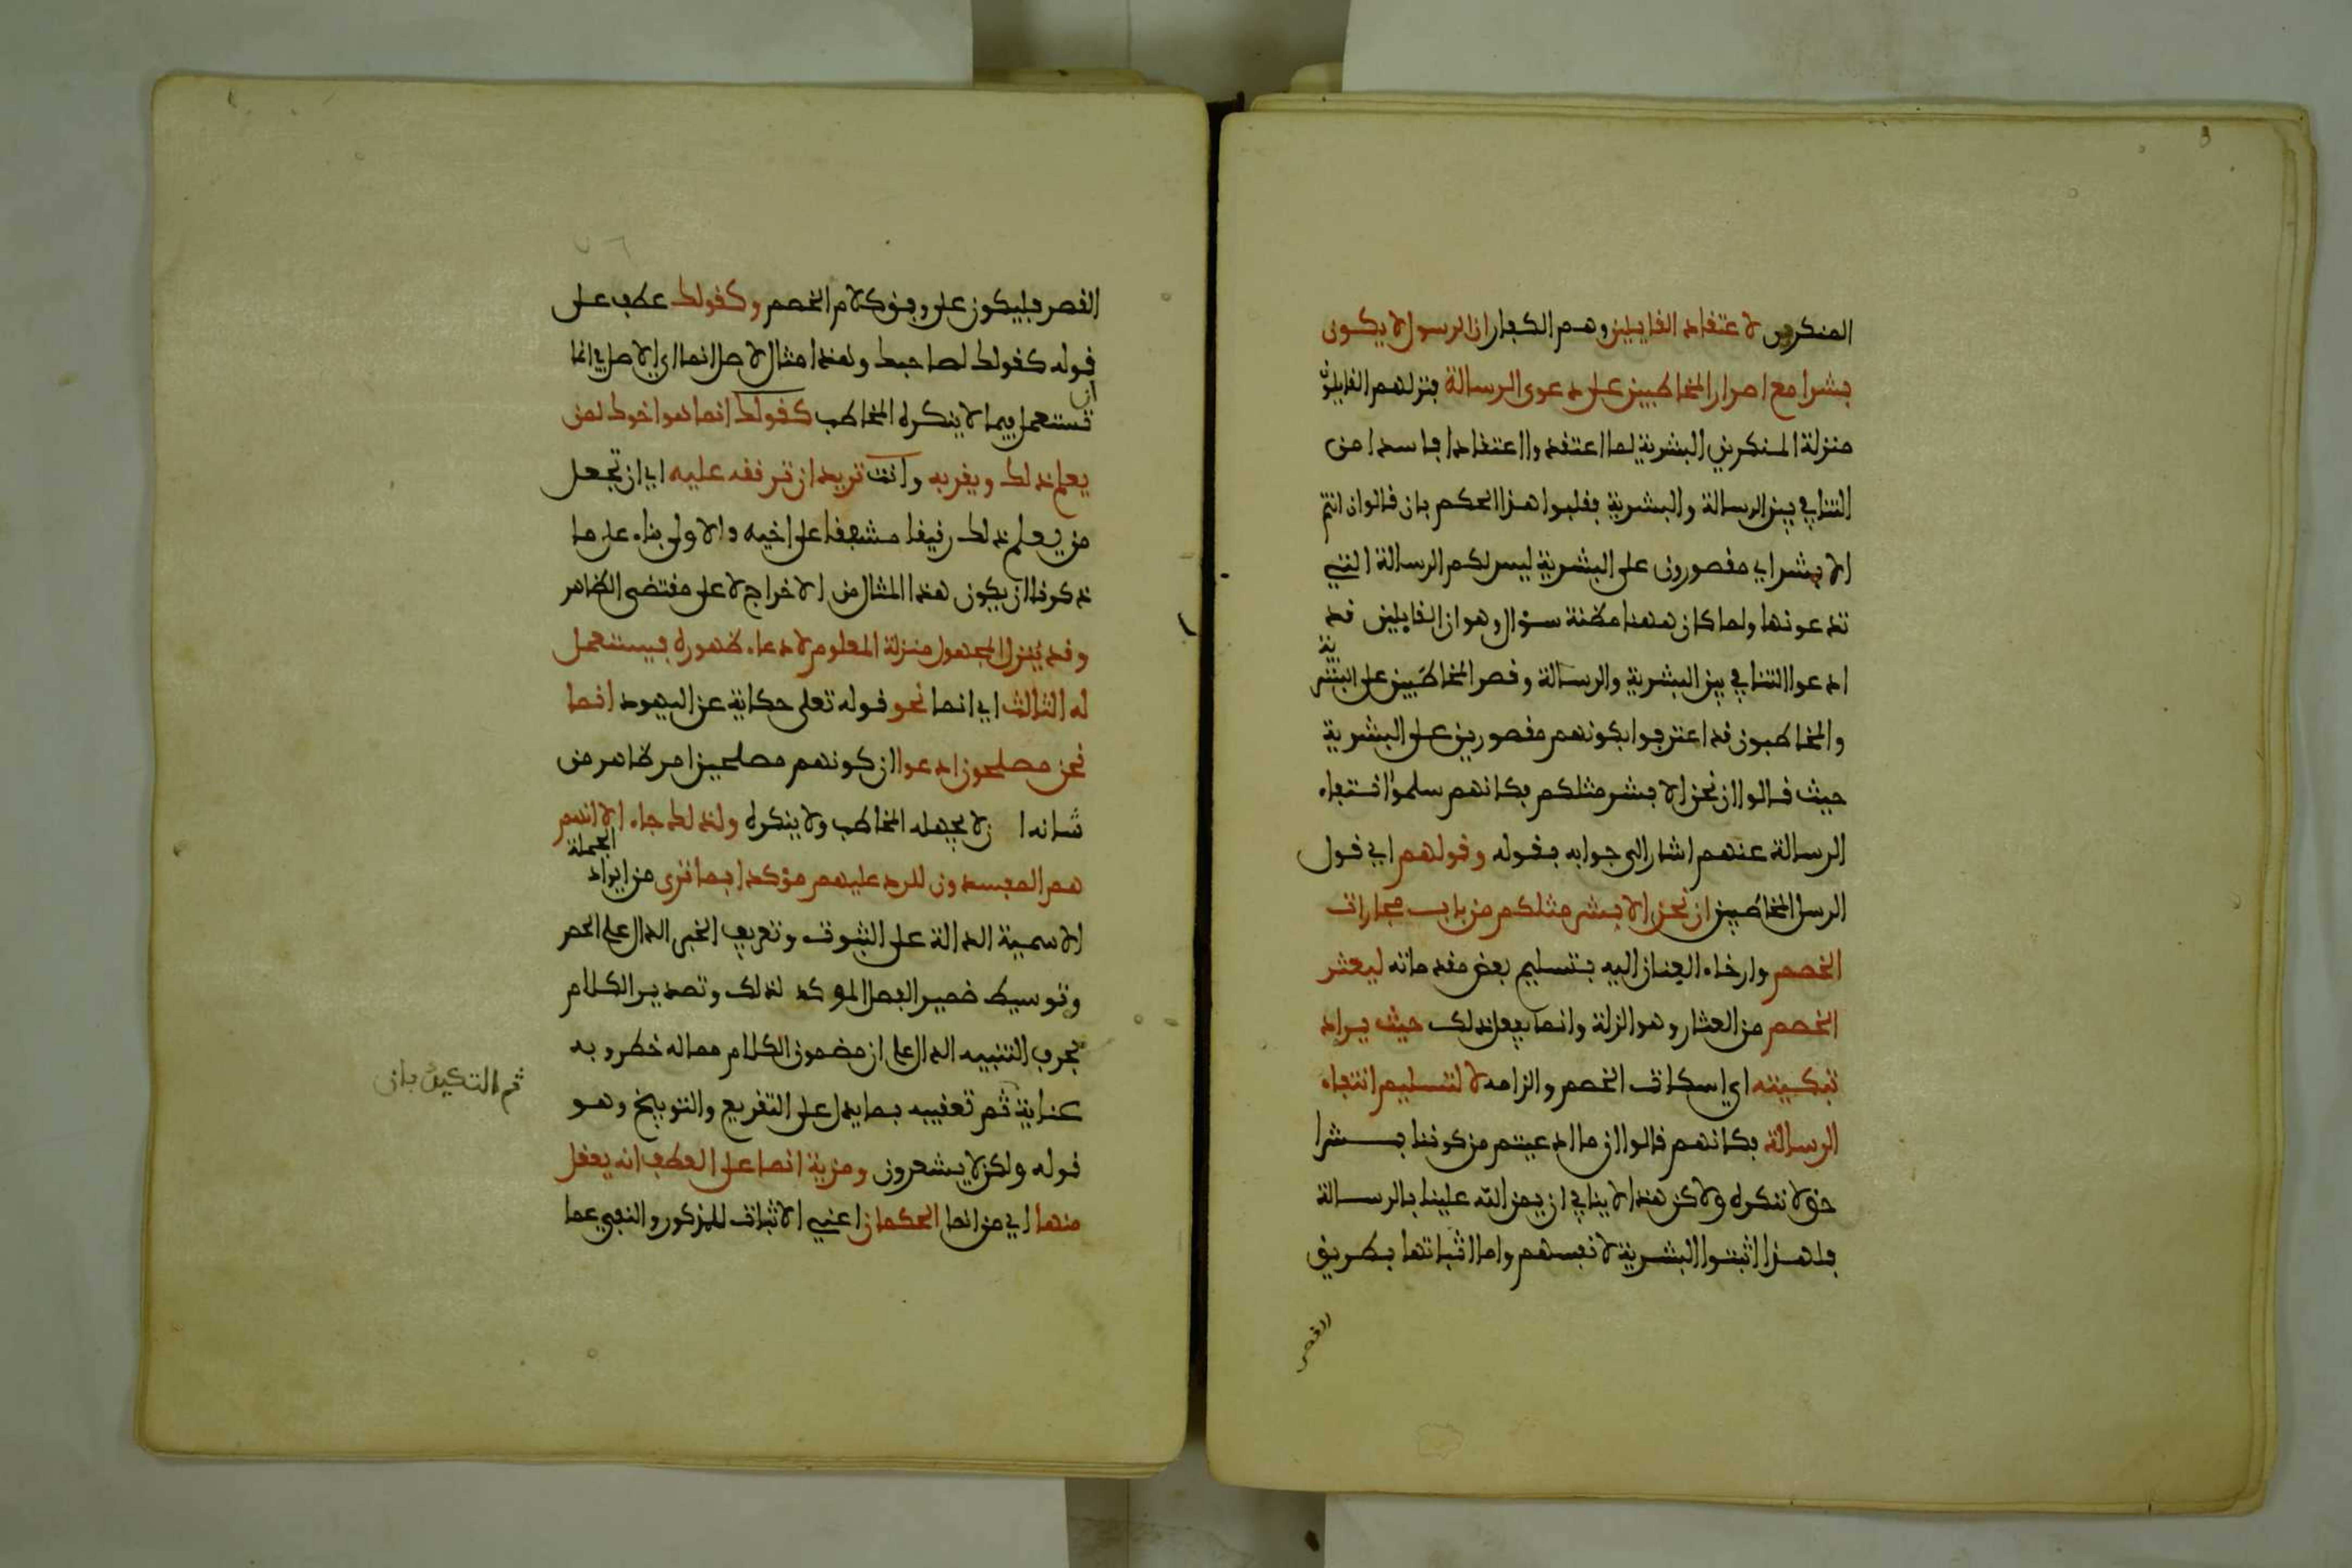 المنكرين لاعتقاد القايلين وهم الكفار ان الرسول لا يكون
بشرا مع اصرار المخاطبين على دعوى الرسالة فنزلهم القايلون
منزلة المنكرين البشرية لما اعتقدوا اعتقادا فاسدا من
التنافي بين الرسالة والبشرية فقلبوا هذا الحكم بان قالوا ان انتم
الا بشر اي مقصورون على البشرية ليس لكم الرسالة التي
تدعونها ولما كان ههنا مظنة سؤال وهو ان القايلين قد
ادعوا التنافي بين البشرية والرسالة وقصر المخاطَبين على البشرية
والمخاطبون قد اعترفوا بكونهم مقصورين على البشرية
حيث قالوا ان نحن الا بشر مثلكم فكانهم سلموا انتفاء
الرسالة عنهم اشار الى جوابه بقوله وقولهم اي قول
الرسل المخاطَبين ان نحن الا بشر مثلكم من باب مجارات
الخصم وارخاء العنان اليه بتسليم بعض مقدماته ليعثر
الخصم من العثار وهو الزلة وانما يفعل ذلك حيث يراد
تبكيته اي اسكات الخصم والزامه لا لتسليم انتفاء
الرسالة فكانهم قالوا ان ما ادعيتم من كوننا بشرا
حق لا ننكره ولاكن هذا لا ينافي ان يمن الله علينا بالرسالة
فلهذا اثبتوا البشرية لانفسهم واما اثباتها بطريق
القصر
القصر فليكون على وفق كلام الخصم وكقولك عطف على
قوله كقولك لصاحبك وهذا مثال لاصل انما اي الاصل في انما
ان تستعمل فيما لا ينكره المخاطب كقولك انما هو اخوك لمن
يعلم ذلك ويقر به وانت تريد ان ترققه عليه اي ان تجعل
من يعلم ذلك رقيقا مشفقا على اخيه والاولى بناء على ما
ذكرنا ان يكون هذا المثال من الاخراج لا على مقتضى الظاهر
وقد ينزل المجهول منزلة المعلوم لادعاء ظهوره فيستعمل
له الثالث اي انما نحو قوله تعلى حكاية عن اليهود انما
نحن مصلحون ادعوا ان كونهم مصلحين امر ظاهر من
شانه ا ن لا يجهله المخاطب ولا ينكره ولذلك جاء الا انهم
هم المفسدون للرد عليهم مؤكدا بما ترى من ايراد الجملة
الاسمية الدالة على الثبوت وتعريف الخبر الدال على الحصر
وتوسيط ضمير الفصل المؤكد لذلك وتصدير الكلام
بحرف التنبيه الدال على ان مضمون الكلام مما له خطر وبه
عناية ثم تعقيبه بما يدل على التقريع والتوبيخ وهو
ثم التكيد بان
قوله ولكن لا يشعرون ومزية انما على العطف انه يعقل
منها اي من انما الحكمان اعني الاثبات للمذكور والنفي عما